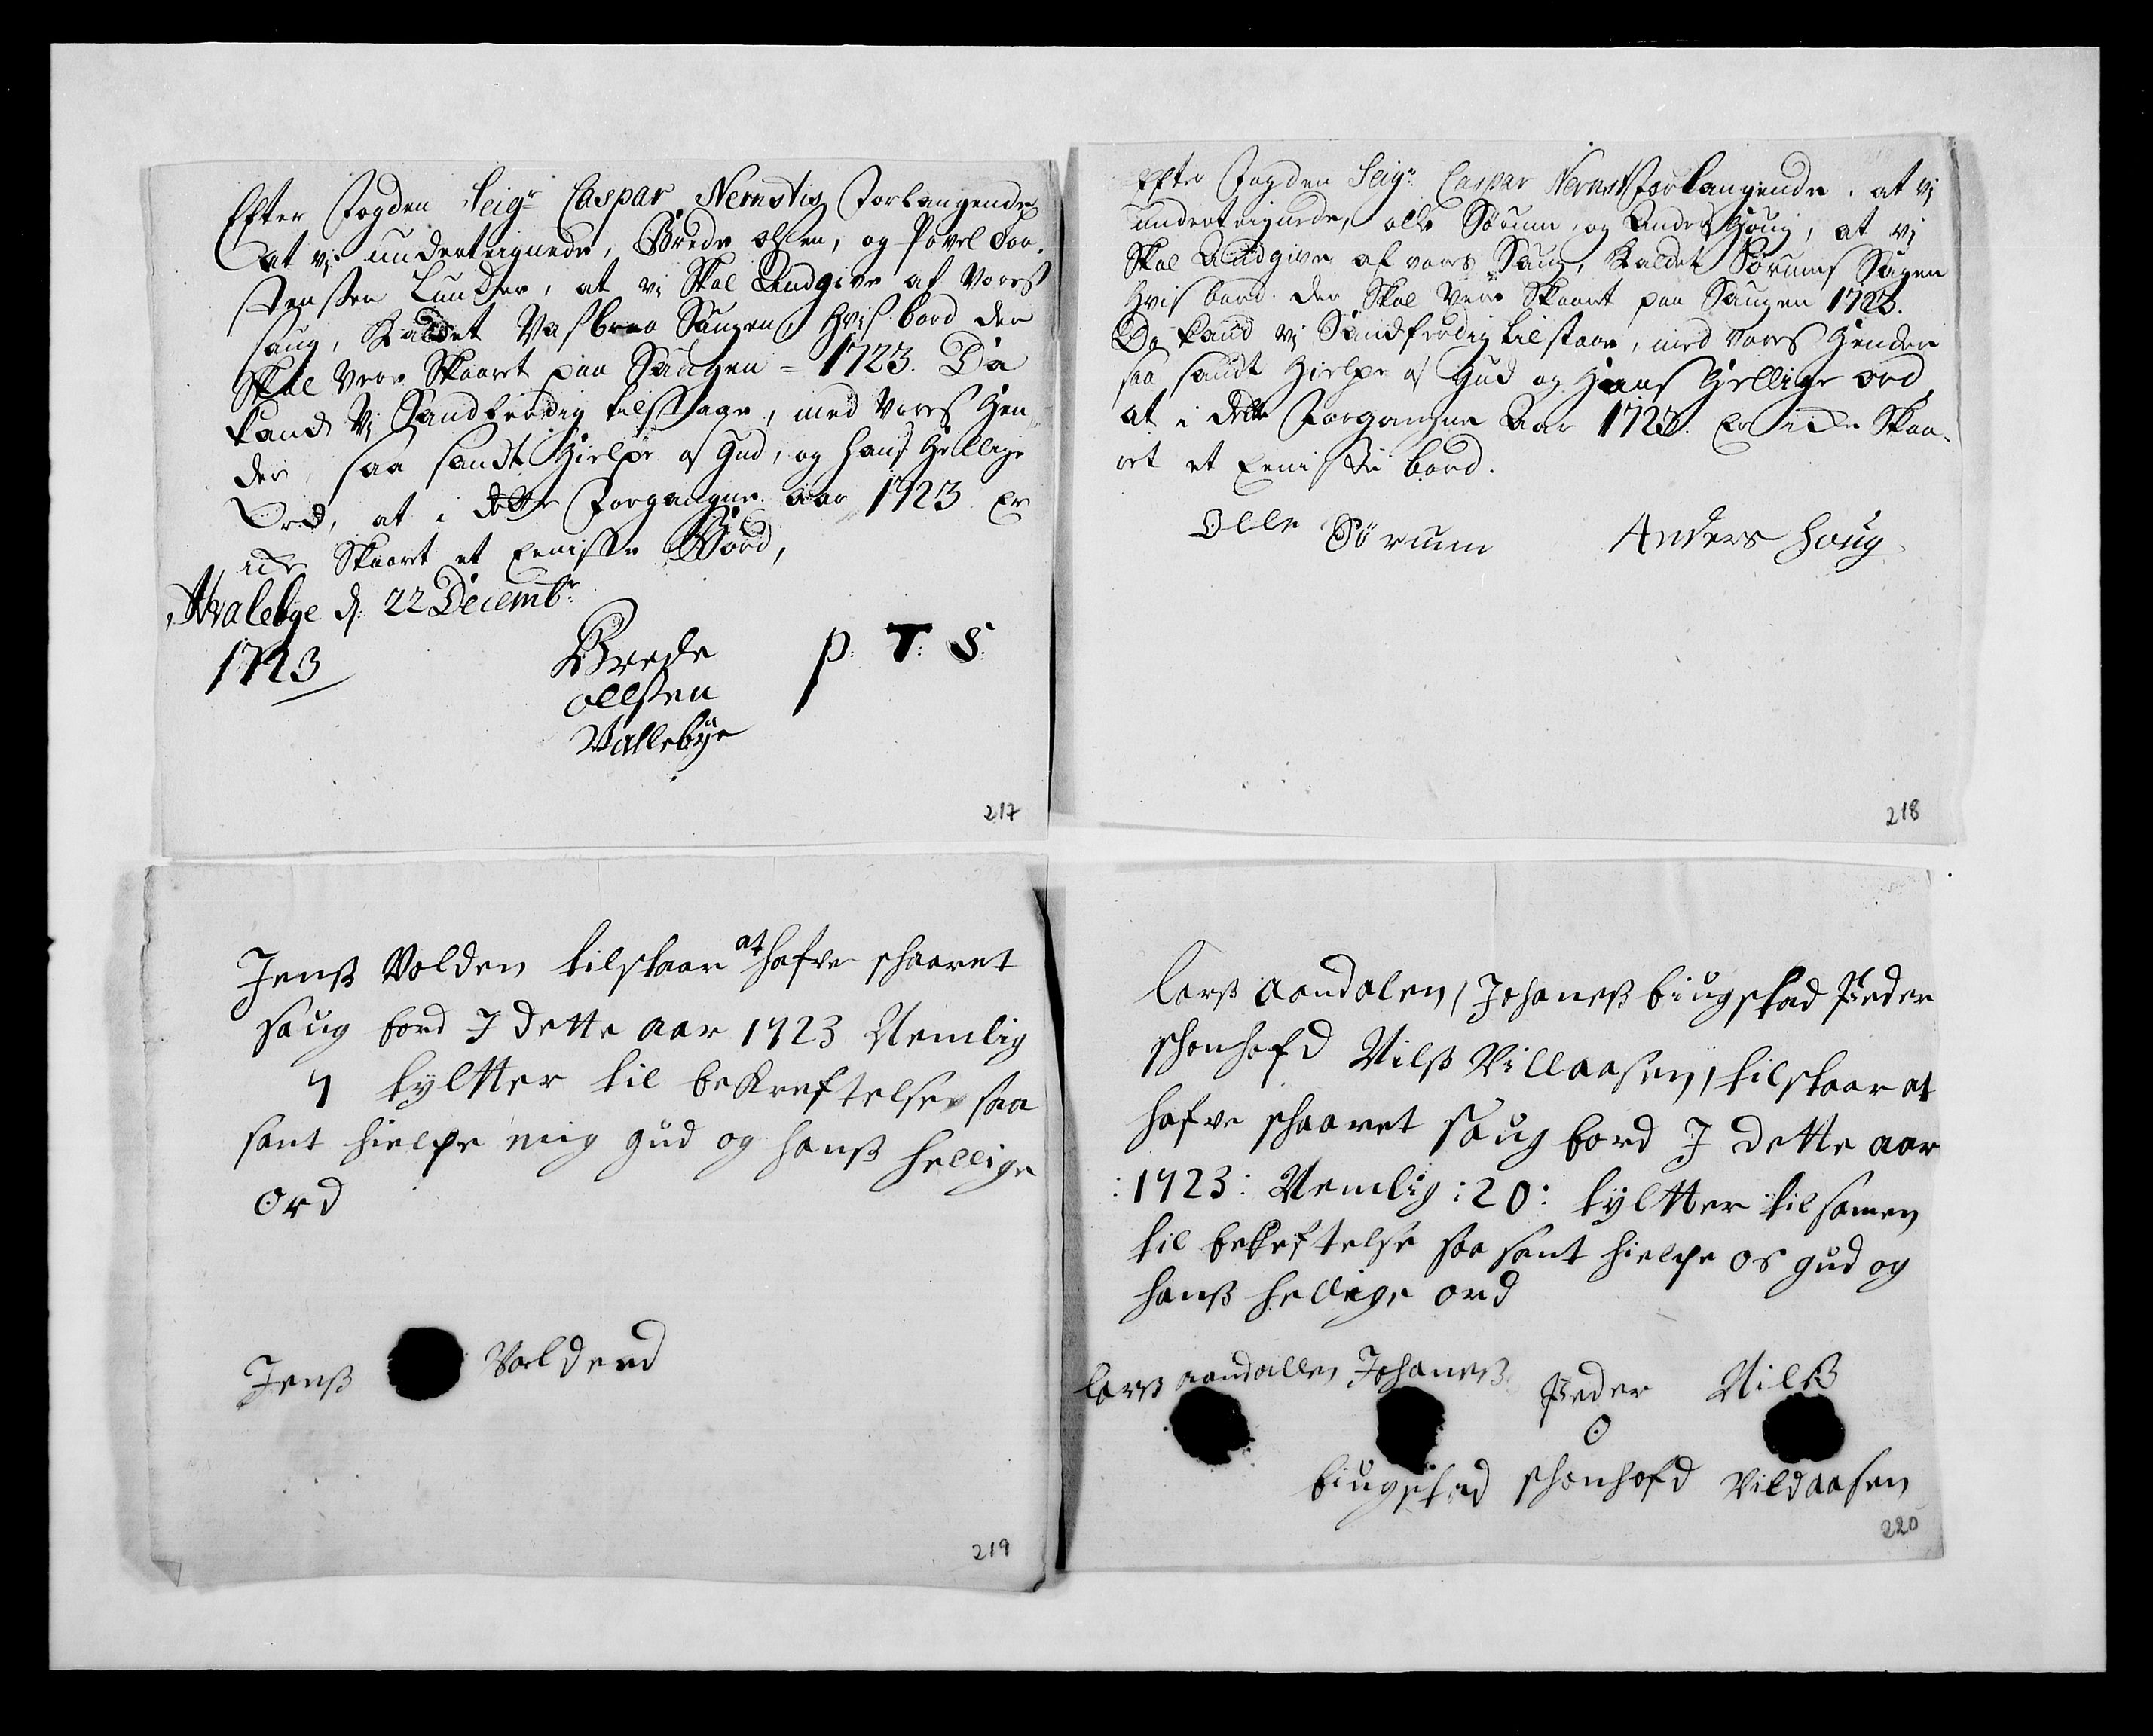 Efter Fogden Seigr Caspar Nernstis Forlangende
at vi underteignede, Brede olsen, og Povel Tor-
stensen Lunder, at vi Skal Andgive af Vores
Saug, Kaldet Vasbraa Saugen, Hvis bord der
Skal Vere Skaaret paa Saugen = 1723. Da
kand Vi Sandferdig tilstaae, med Vores Hen-
der, saa sandt Hielpe os Gud, og hans Hellige
Ord, at i dette Forgangne aar 1723 Er
icke Skaaret et Eeniste Bord,
Hvalebye d: 22 Decembr:
1723
Brede
ollsen
Vallebye
P: T: S:
217
Efter Fogden Seigr: Caspar Nernst Forlangende, at vi
underteignede, olle Sørum, og Anders Houg, at vi
Skal Andgive af vores Saug, Kaldet Sørums Sagen
Hvis bord der Skal Vere Skaaret paa Saugen 1723.
Da kand vi Sandferdig tilstaae, med Vores Hender
saa sandt Hielpe os Gud og Hans Hellige ord,
at i dette Forgangne Aar 1723. Er icke Skaa-
ret et Eeniste bord.
Olle Sørum Anders Houg
218
Jenß Volden tilstaar at hafve schaaret
saug bord J dette aar 1723 Nemlig
7 tyltter til bekreftelse saa
sant hielpe mig gud og hanß hellige
ord
Jenß Voldend
219
Larß aandalen, Johaneß biugstad Peder
schonhofd Nilß Villaasen, tilstaar at
hafve schaaret saug bord J dette aar
:1723: Nemlig :20: tyltter tilsamen
til bekeftelse saa sant hielpe os gud og
hanß hellige ord
Larß aandallen Johaneß Peder Nilß
biugstad schonhofd Vildaasen
220